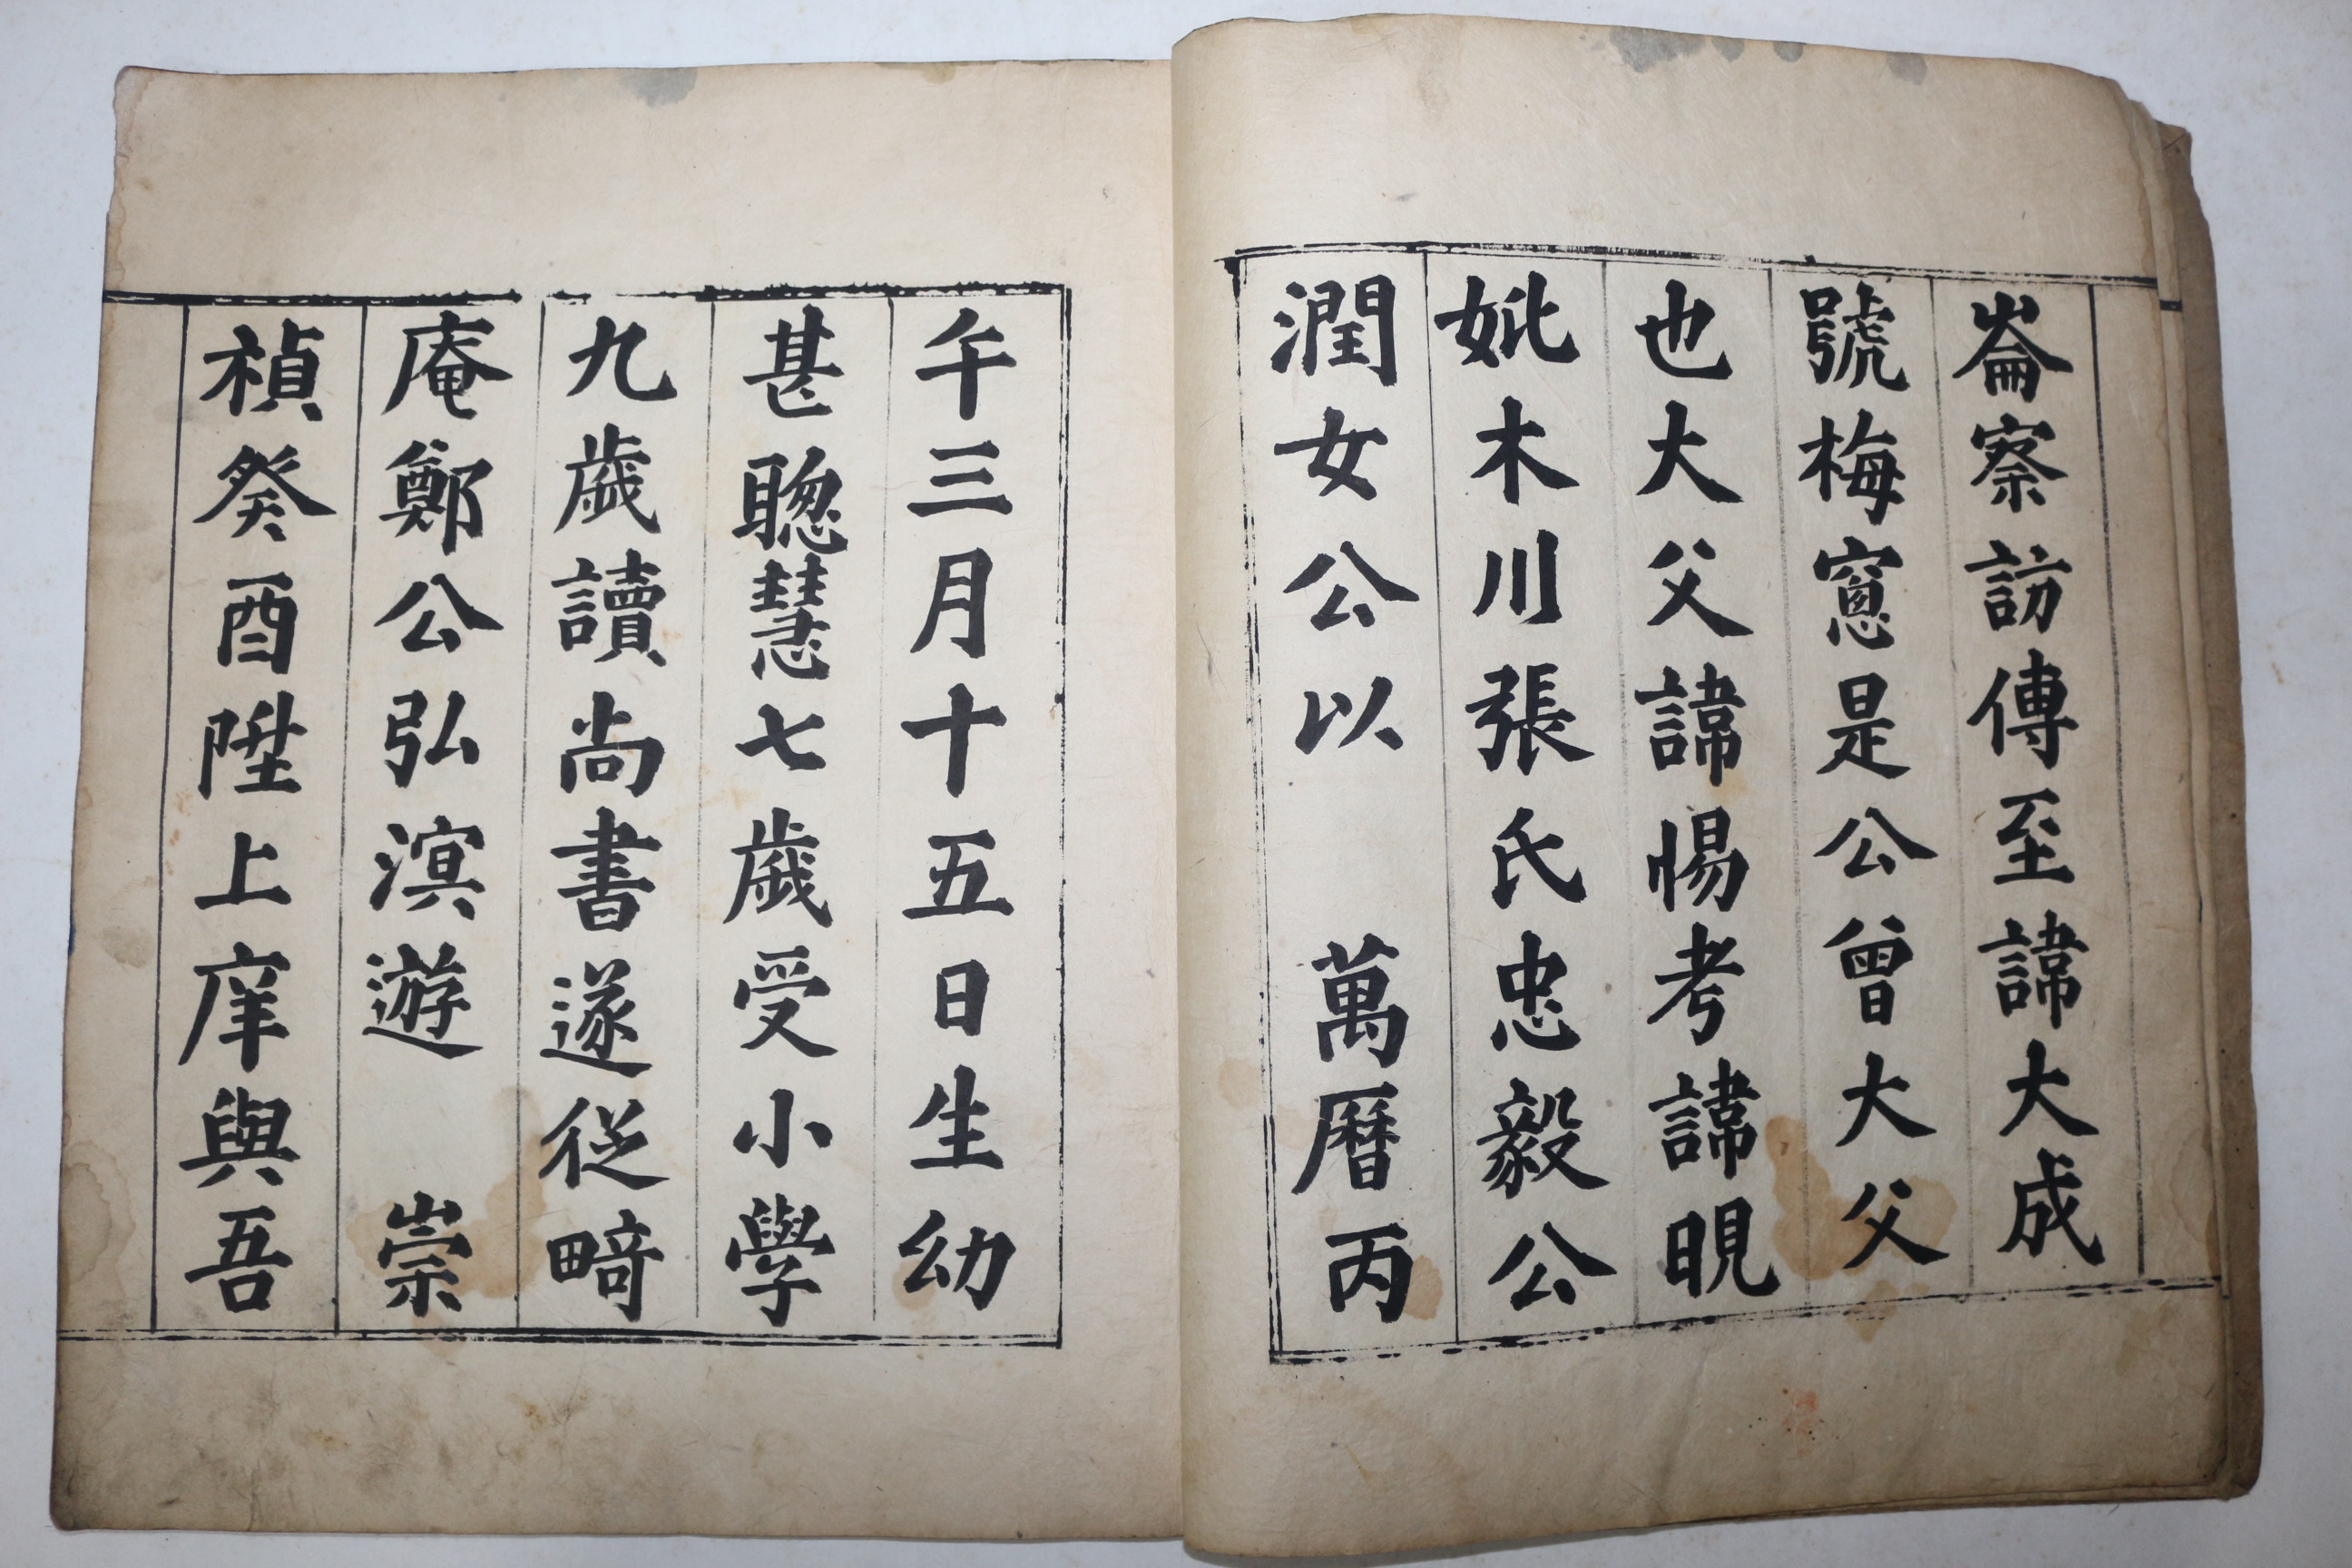 崙察訪傳至諱大成
號梅窻是公曾大父
也大父諱惕考諱晛
妣木川張氏忠毅公
潤女公以 萬曆丙
午三月十五日生幼
甚聰慧七歲受小學
九歲讀尚書遂從畸
庵鄭公弘溟遊 崇
禎癸酉陞上庠與吾